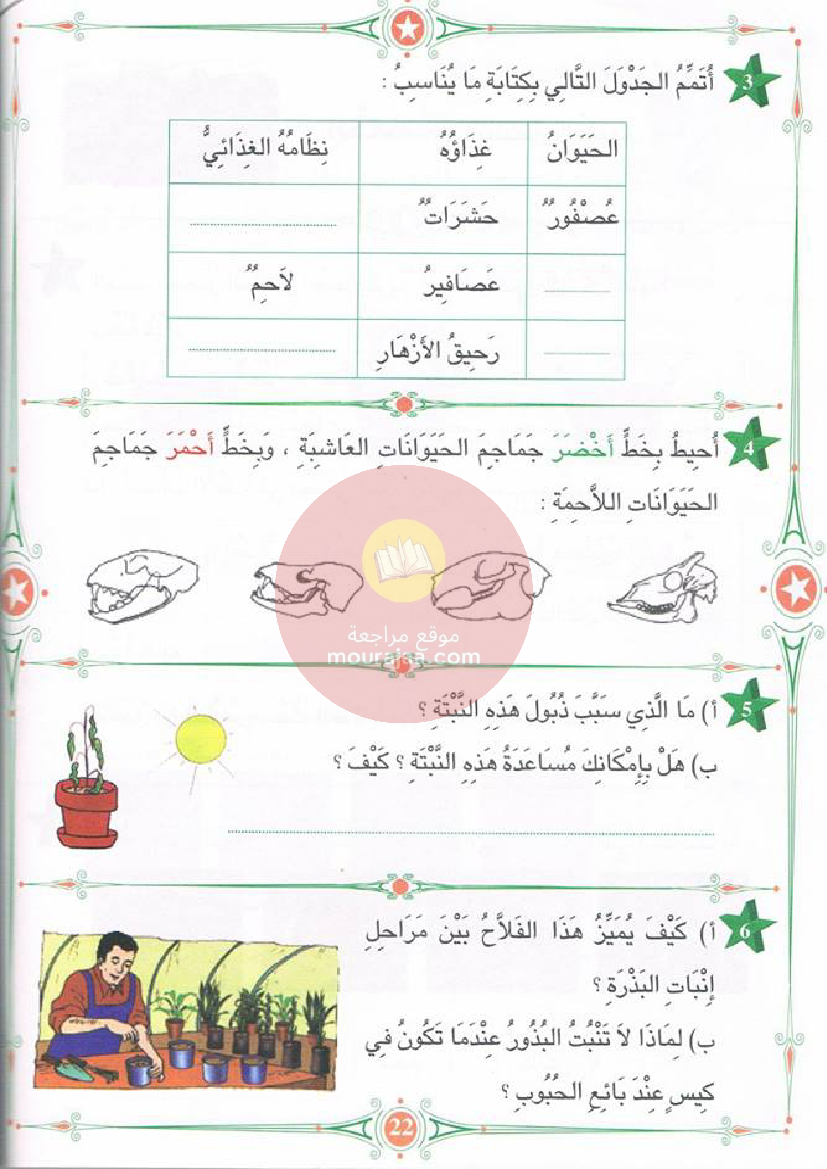 3 أُتَمِّمُ الجَدْوَلَ التَّالِي بِكِتَابَةِ مَا يُنَاسِبُ :
الحَيَوَانُ غِذَاؤُهُ نِظَامُهُ الغِذَائِيُّ
عُصْفُورٌ حَشَرَاتٌ
عَصَافِيرُ لاَحِمٌ
رَحِيقُ الأَزْهَارِ
4 أُحِيطُ بِخَطٍّ أَخْضَرَ جَمَاجِمَ الحَيَوَانَاتِ العَاشِبَةِ ، وَبِخَطٍّ أَحْمَرَ جَمَاجِمَ
الحَيَوَانَاتِ اللاَّحِمَةِ :
موقع مراجعة
mourajaa.com
5 أ) مَا الَّذِي سَبَّبَ ذُبُولَ هَذِهِ النَّبْتَةِ ؟
ب) هَلْ بِإِمْكَانِكَ مُسَاعَدَةُ هَذِهِ النَّبْتَةِ ؟ كَيْفَ ؟
6 أ) كَيْفَ يُمَيِّزُ هَذَا الفَلاَّحُ بَيْنَ مَرَاحِلِ
إِنْبَاتِ البَذْرَةِ ؟
ب) لِمَاذَا لاَ تَنْبُتُ البُذُورُ عِنْدَمَا تَكُونُ فِي
كِيسٍ عِنْدَ بَائِعِ الحُبُوبِ ؟
22